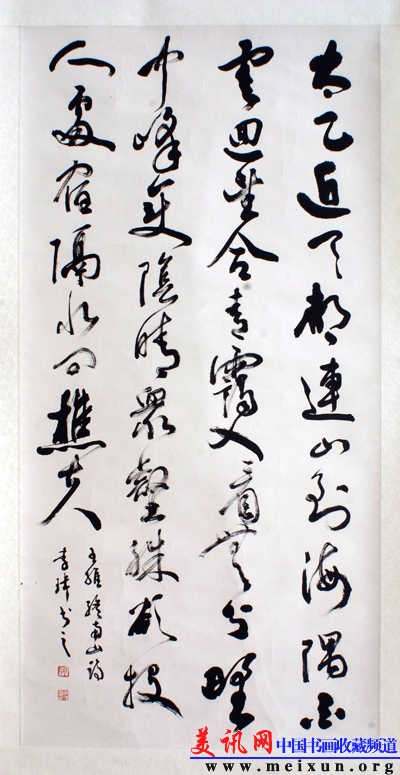 太乙近天都連山到海隅白
雲迴望合青靄入看無分野
中峰變陰晴眾壑殊欲投
人處宿隔水問樵夫
王維終南山詩
書之
美讯网 中国书画收藏频道
www.meixun.org